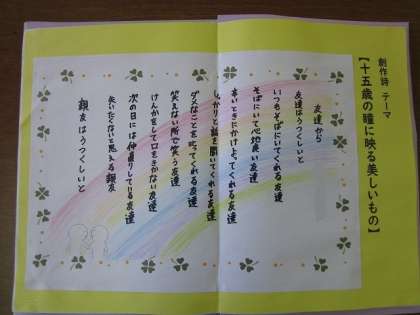 創作詩 テーマ
【十五歳の瞳に映る美しいもの】
友達から
友達はうつくしいと
いつもそばにいてくれる友達
そばにいて心地良い友達
辛いときにかけよってくれる友達
っかりと話を聞いてくれる友達
ダメなことを叱ってくれる友達
笑えない所で笑う友達
けんかをして口をきかない友達
次の日には仲直りしている友達
失いたくないと思える親友
親友はうつくしいと